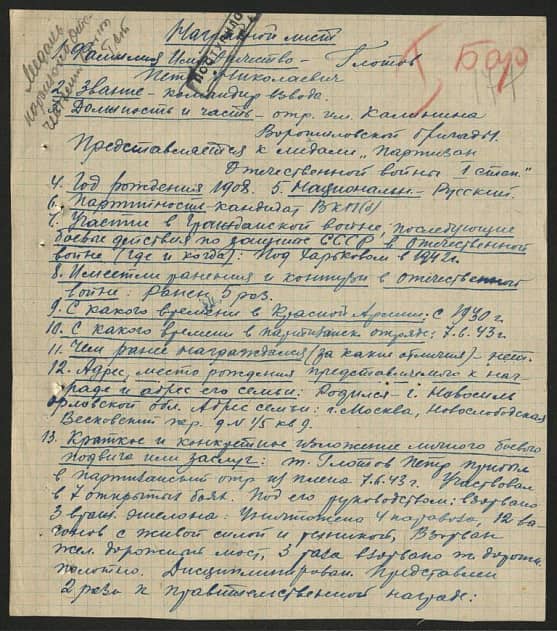 Наградной лист
1. Фамилия Имя отчество – Глотов
Петр Николаевич
2. Звание – командир взвода.
3. Должность и часть – отр. им. Калинина
Ворошиловской бригады.
Представляется к медали „Партизан
Отечественной войны 1 степ."
4. Год рождения 1908. 5. Национальн. – Русский.
6. Партийность – кандидат ВКП(б)
7. Участие в Гражданской войне, последующие
боевые действия по защите СССР в отечественной
войне (где и когда): Под Харьковом в 1942 г.
8. Имеет ли ранения и контузии в отечественной
войне: Ранен 5 раз.
9. С какого времени в Красной Армии: С 1930 г.
10. С какого времени в партизанск. отряде: 7.6.43 г.
11. Чем ранее награждался (за какие отличия) – нет.
12. Адрес, место рождения представляемого к наг-
раде и адрес его семьи: Родился – г. Новосиль
Орловской обл. Адрес семьи: г. Москва, Новослободская
Весковский пер. д N 1/5 кв 9.
13. Краткое и конкретное изложение личного боевого
подвига или заслуг: т. Глотов Петр прибыл
в партизанский отр. из плена 7.6.43 г. Участвовал
в 7 открытых боях. Под его руководством: взорвано
3 враж. эшелона: Уничтожено 4 паровоза, 12 ва-
гонов с живой силой и техникой, Взорван
жел. дорожный мост, 3 раза взорвано ж. дорожн.
полотно. Дисциплинирован. Представлен
2 раза к правительственной награде:
Медаль
поступило
Бар